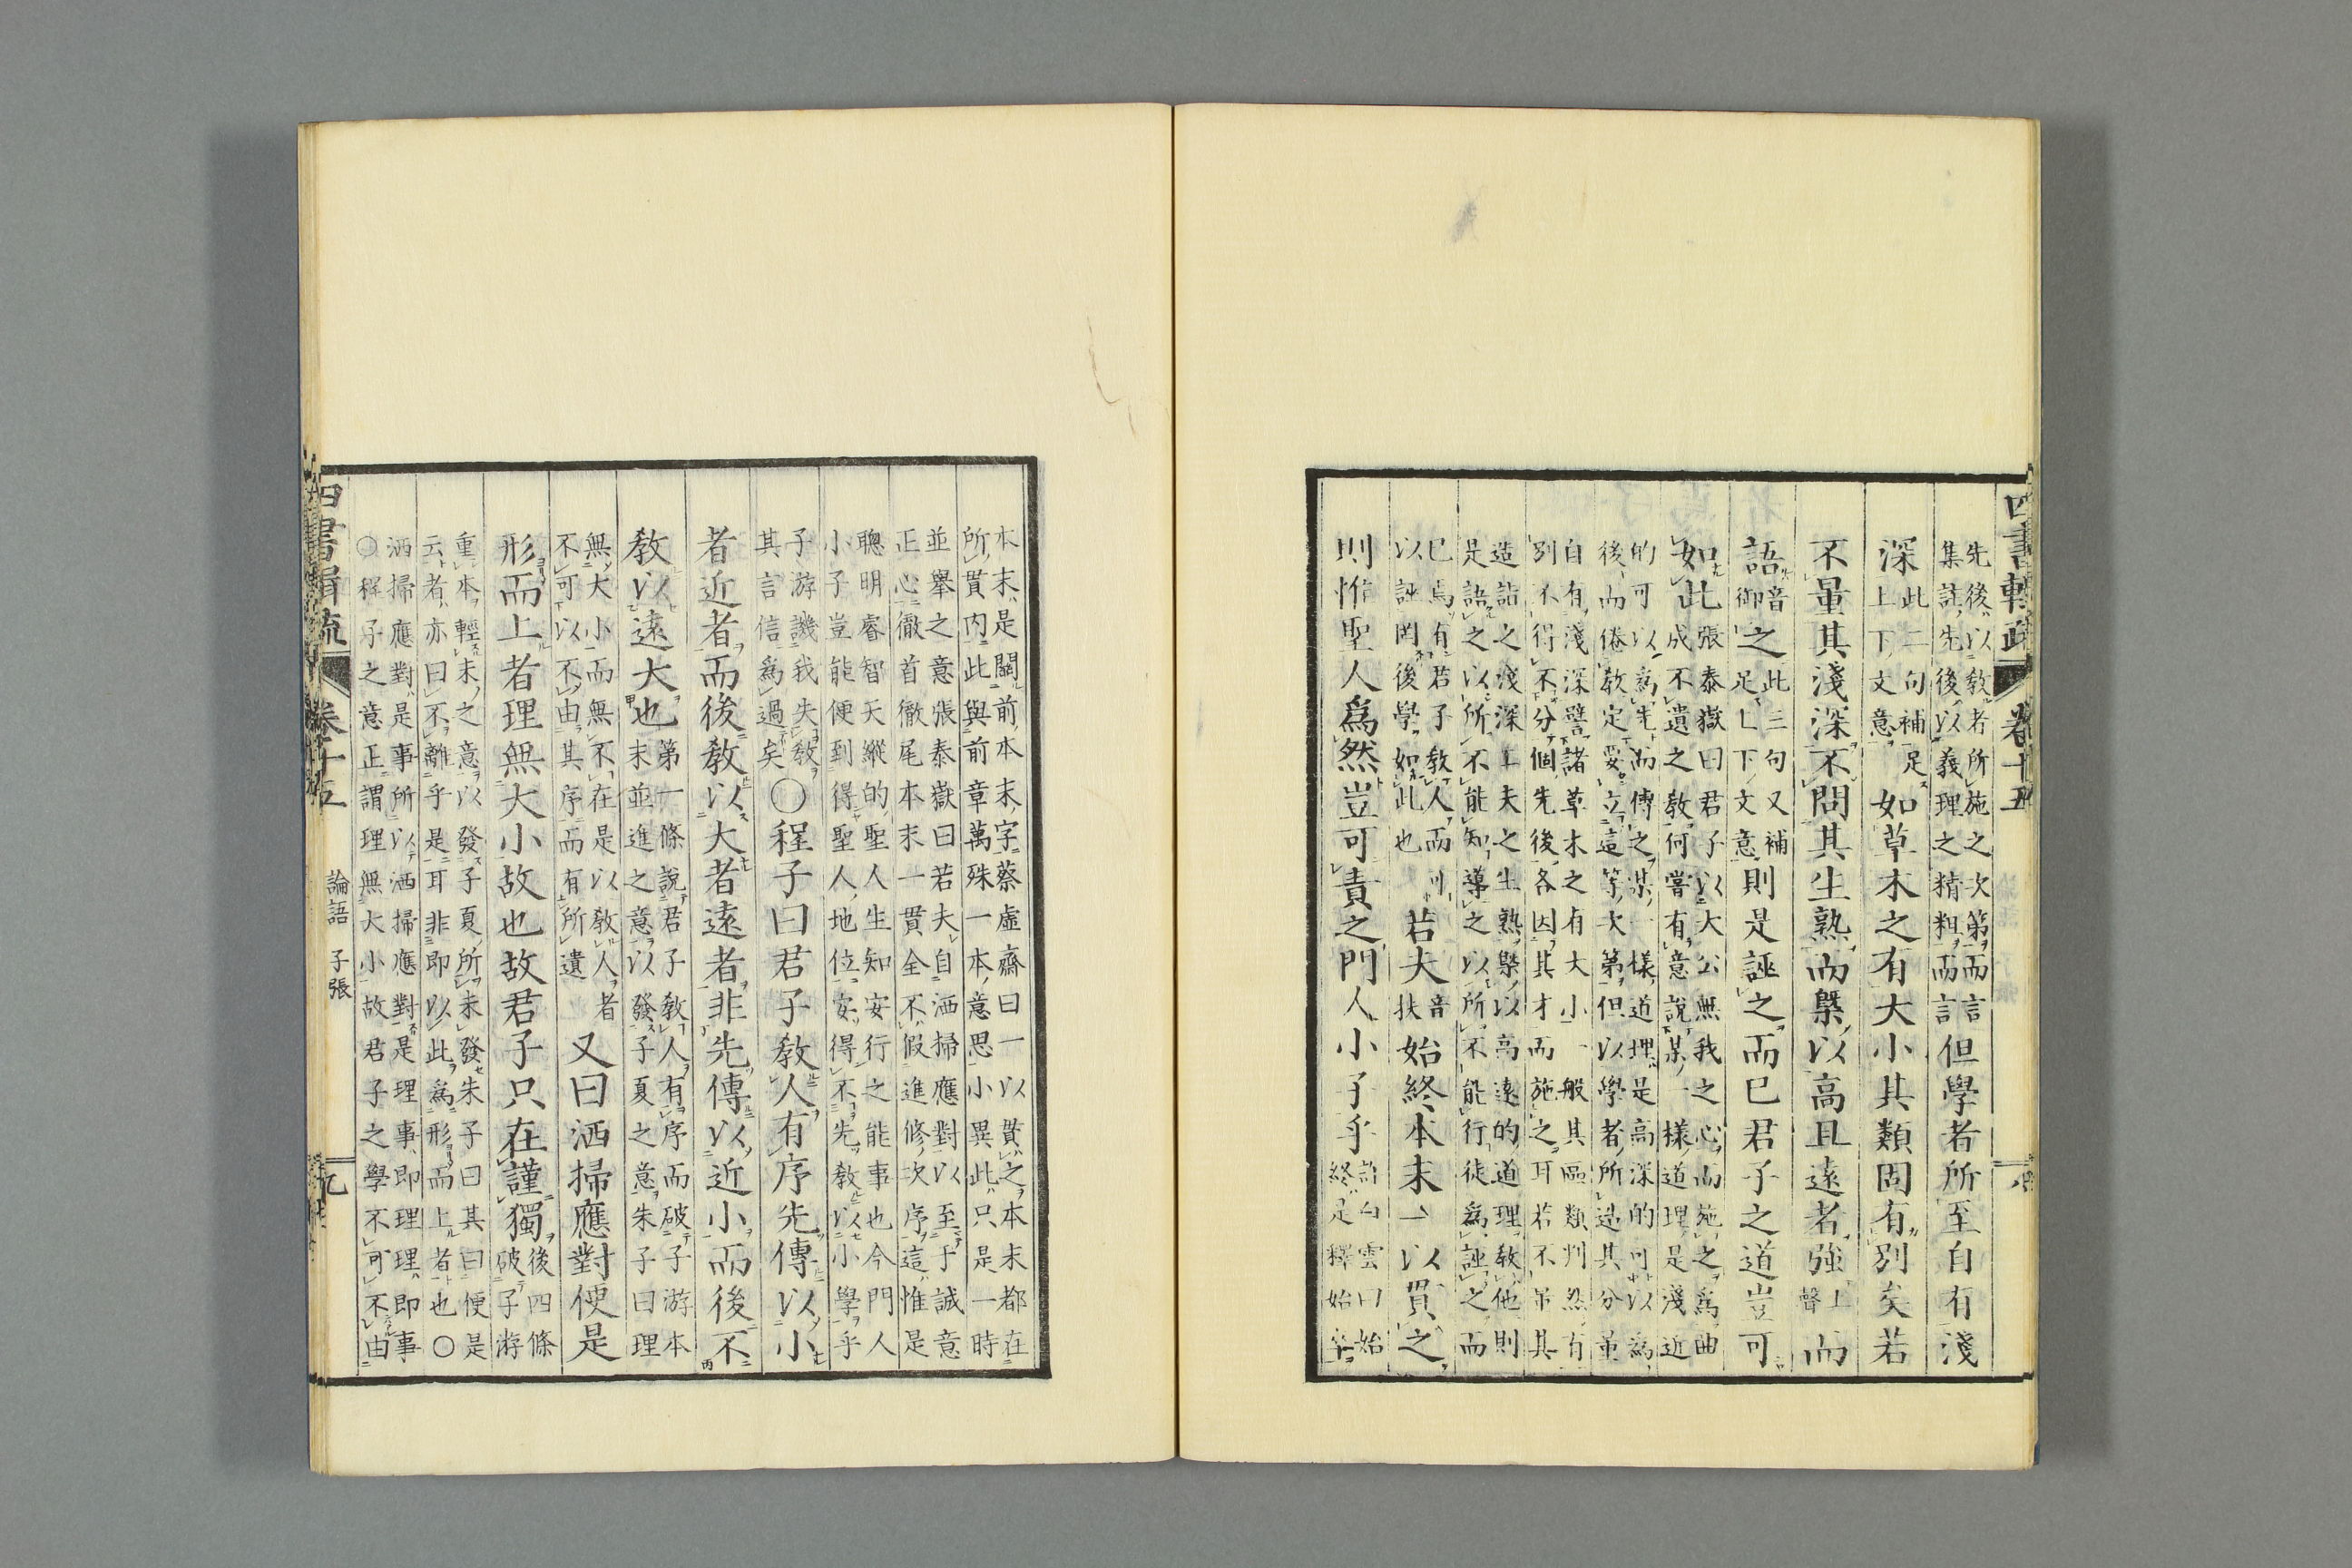 四書輯疏 卷十五
先後以教者所施之次第而言
集註先後以義理之精粗而言
但學者所至自有淺
深
此二句補足
上下文意
如草木之有大小其類固有別矣若
不量其淺深不問其生熟而槩以高且遠者強
上聲
而
語
去音
御
之
此三句又補
足上下文意
則是誣之而已君子之道豈可
如此
張泰嶽曰君子以大公無我之心而施之爲曲
成不遺之教何嘗有意說某一樣道理是淺近
的可以爲先而傳之某一樣道理是高深的可以爲
後而倦教定要立這等次第但以學者所造其分量
自有淺深譬諸草木之有大小一般其區類判然有
別不得不分個先後各因其才而施之耳若不吊其
造詣之淺深工夫之生熟槩以高遠的道理教他則
是語之以所不能知導之以所不能行徒爲誣之而
已焉有君子教人而
以誣罔後學如此也
若夫
音
扶
始終本末一以貫之
則惟聖人爲然豈可責之門人小子乎
許白雲曰始
終是釋始卒
本末是關前本末字蔡虛齋曰一以貫之本末都在
所貫内此與前章萬殊一本意思小異此只是一時
並擧之意張泰嶽曰若夫自洒掃應對以至于誠意
正心徹首徹尾本末一貫全不假進修次序這惟是
聰明睿智天縱的聖人生知安行之能事也今門人
小子豈能便到得聖人地位安得不先教以小學乎
子游譏我失教
其言信爲過矣
〇程子曰君子教人有序先傳以小
者近者而後教以大者遠者非先傳以近小而後不
教以遠大也
第一條說君子教人有序而破子游本
末並進之意以發子夏之意朱子曰理
無大小而無不在是以教人者
不可以不由其序而有所遺
又曰洒掃應對便是
形而上者理無大小故也故君子只在謹獨
後四條
破子游
重本輕末之意以發子夏所未發朱子曰其曰便是
云者亦曰不離乎是耳非即以此爲形而上者也〇
洒掃應對是事所以洒掃應對是理事即理理即事
〇釋子之意正謂理無大小故君子之學不可不由
四書輯疏 卷十五 論語 子張 九